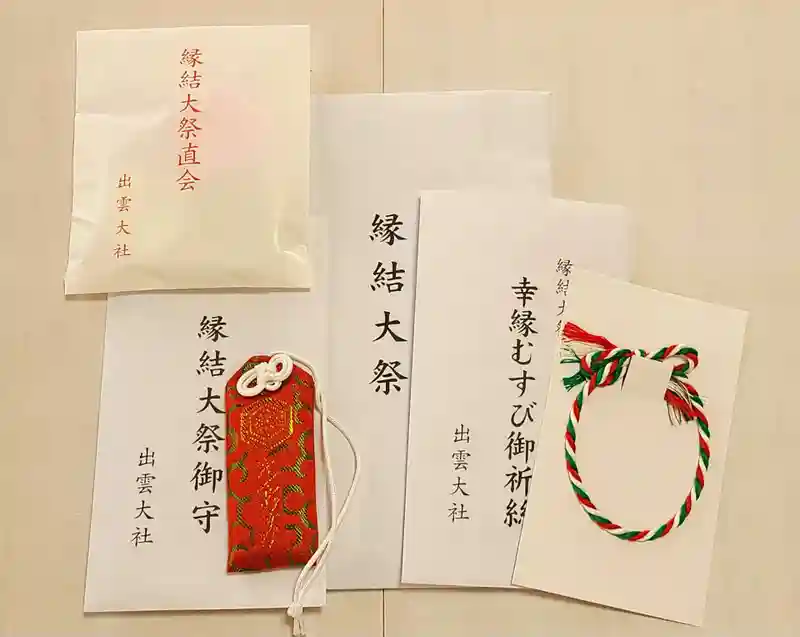 縁結大祭直会
出雲大社
縁結大祭
縁結大祭御守
出雲大社
縁結大祭
幸縁むすび御祈絲
出雲大社